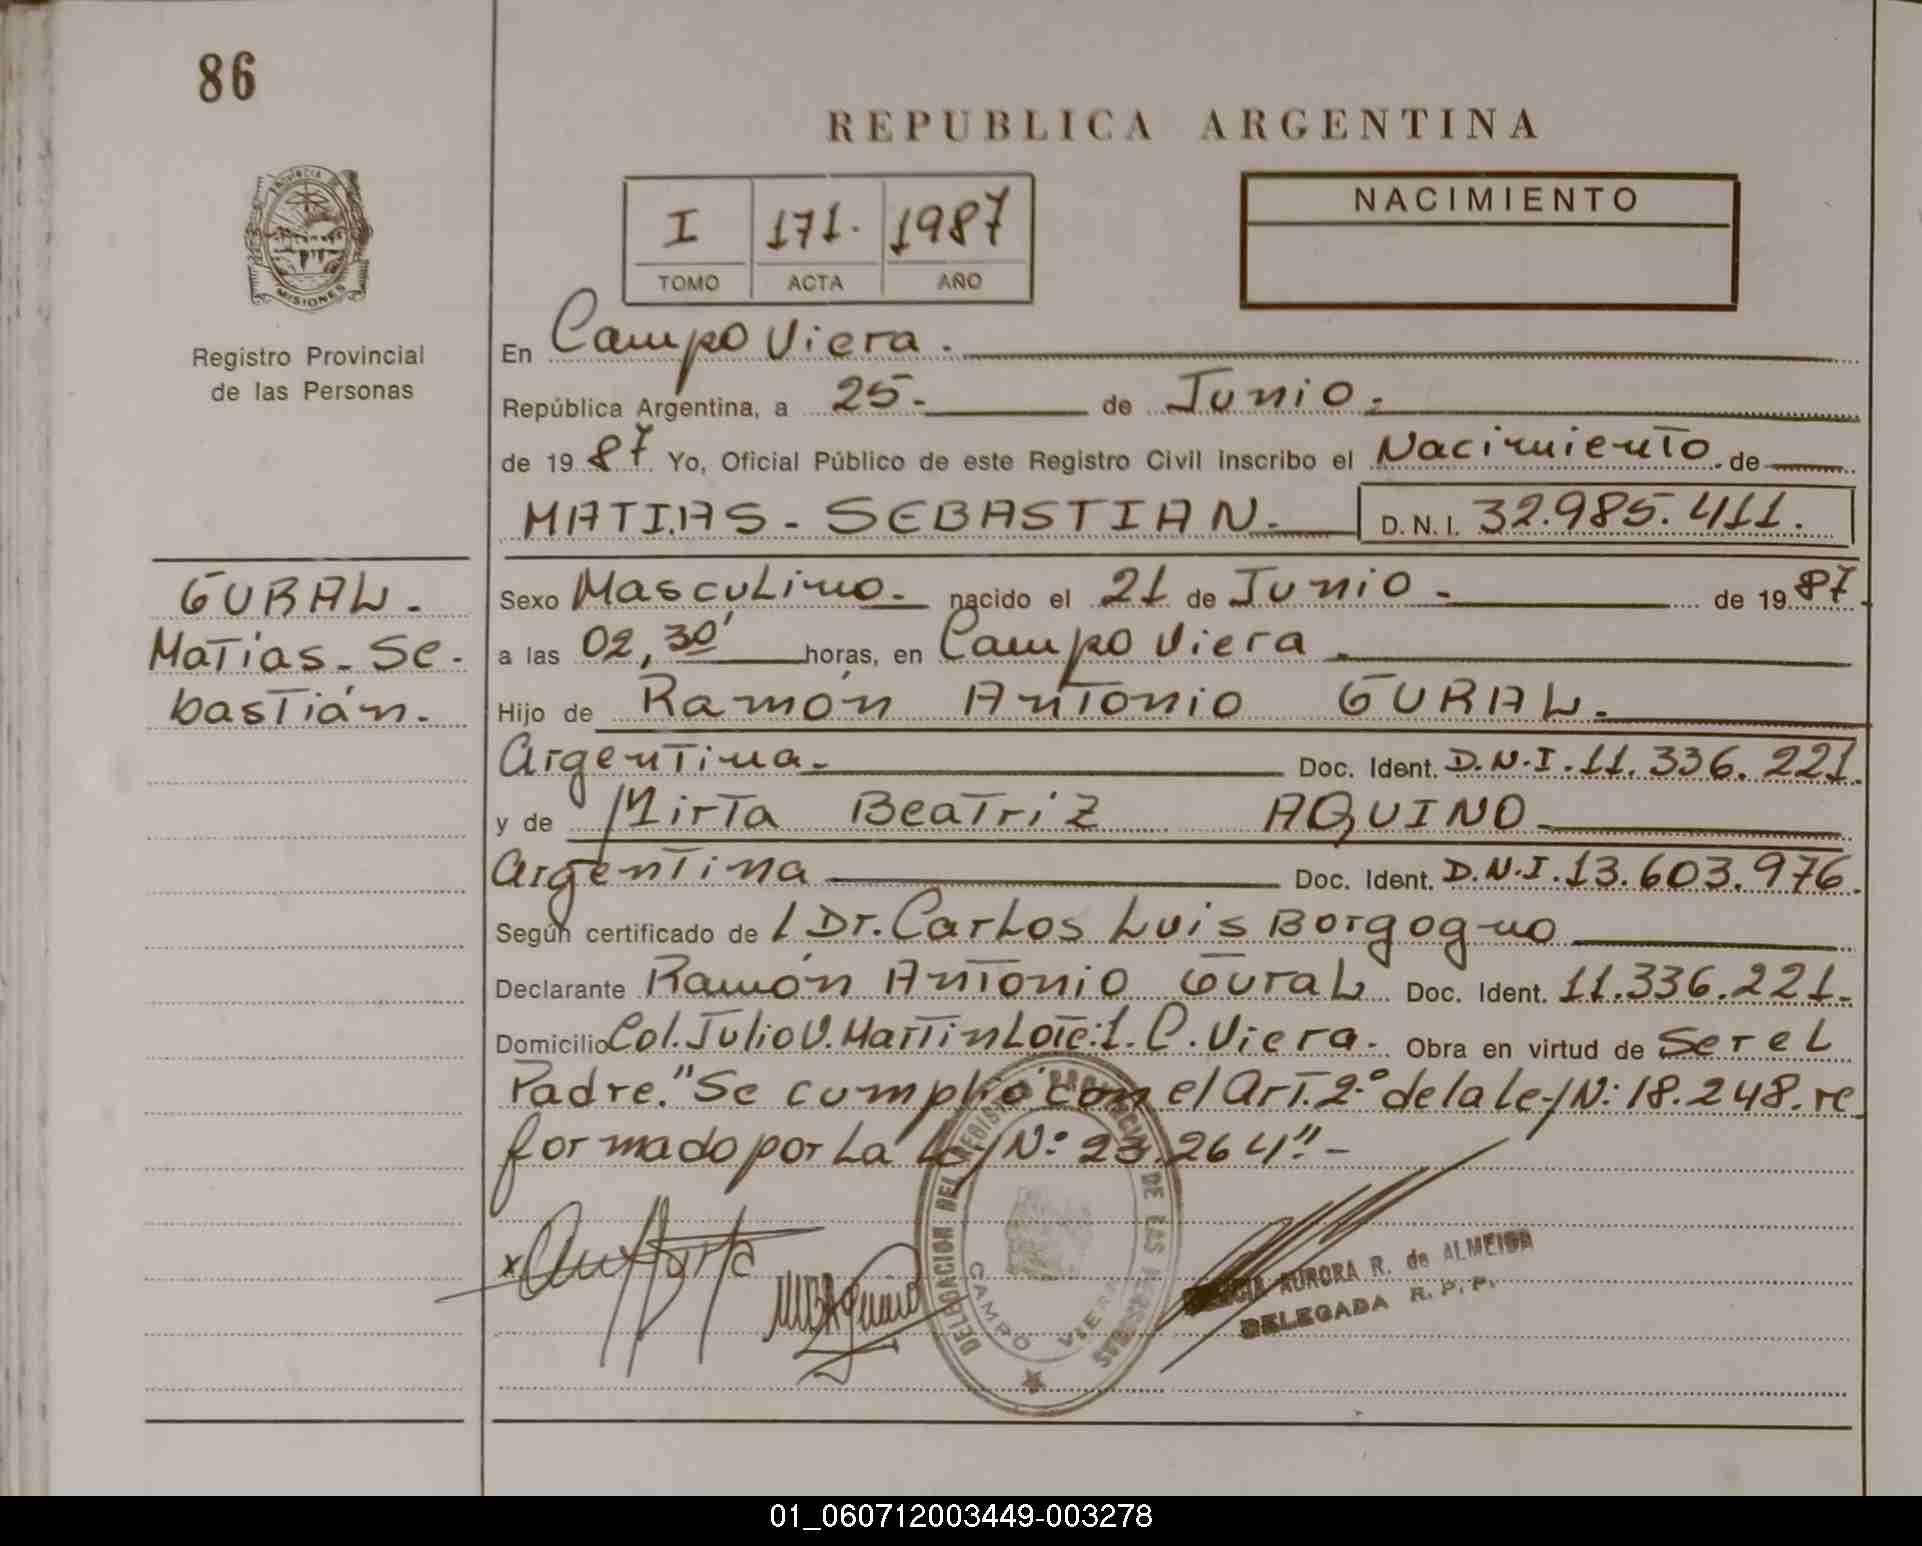 86
REPUBLICA ARGENTINA
PROVINCIA DE
MISIONES
Registro Provincial
de las Personas
I 171. 1987
TOMO ACTA AÑO
NACIMIENTO
En Campo Viera.
República Argentina, a 25- de Junio.
de 1987 Yo, Oficial Público de este Registro Civil inscribo el Nacimiento de
MATIAS - SEBASTIAN. D.N.I. 32.985.411.
GURAL.
Matias - Se-
bastián.
Sexo Masculino. nacido el 21 de Junio - de 1987.
a las 02,30' horas, en Campo Viera.
Hijo de Ramón Antonio GURAL.
Argentina. Doc. Ident. D.N.I. 11.336.221.
y de Mirta Beatriz AQUINO
Argentina Doc. Ident. D.N.I. 13.603.976.
Según certificado de / Dr. Carlos Luis Borgogno
Declarante Ramón Antonio Gural Doc. Ident. 11.336.221.
Domicilio Col. Julio U. Martin Lote: 1. C. Viera. Obra en virtud de Ser el
Padre. "Se cumplió con el Art. 2º de la ley N: 18.248. re
formado por La Ley Nº 23.264". -
DELEGACION DEL REGISTRO PROVINCIAL DE LAS PERSONAS
CAMPO VIERA
AURORA R. de ALMEIDA
DELEGADA R.P.P.
01_060712003449-003278